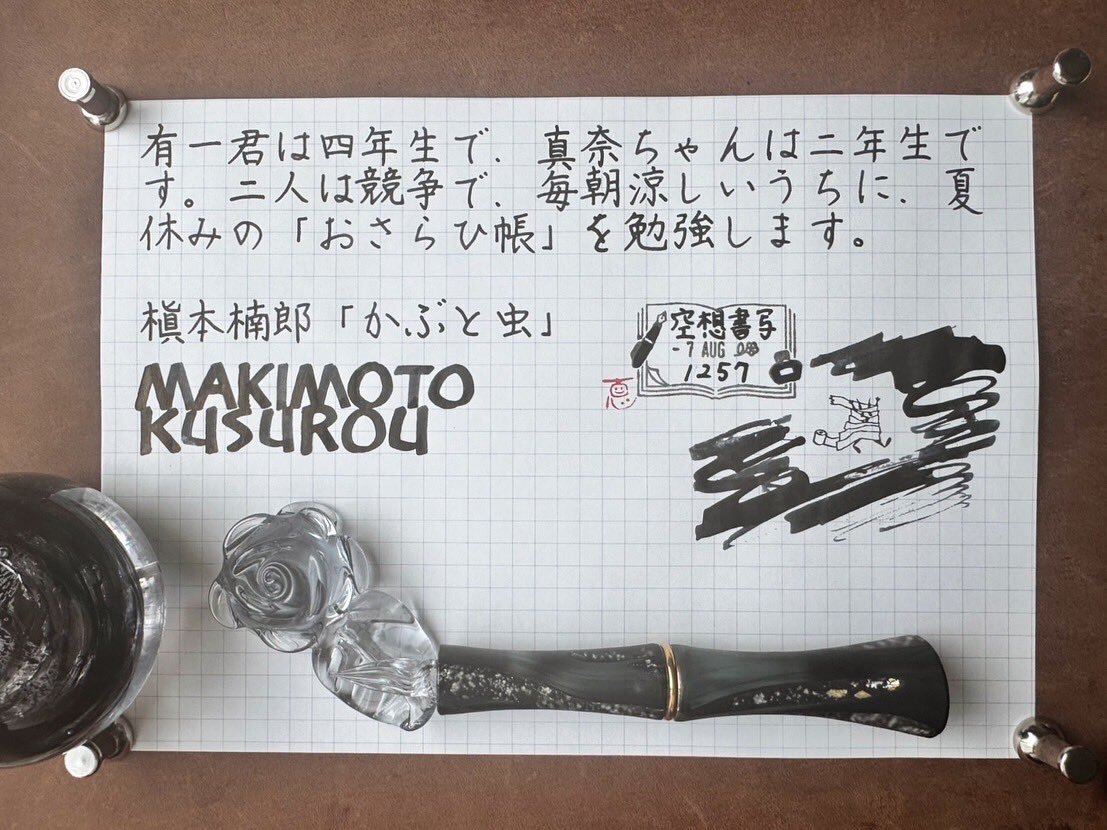 有一君は四年生で、真奈ちゃんは二年生で
す。二人は競争で、毎朝涼しいうちに、夏
休みの「おさらひ帳」を勉強します。
槇本楠郎「かぶと虫」
MAKIMOTO
KUSUROU
空想書写
-7 AUG
1257